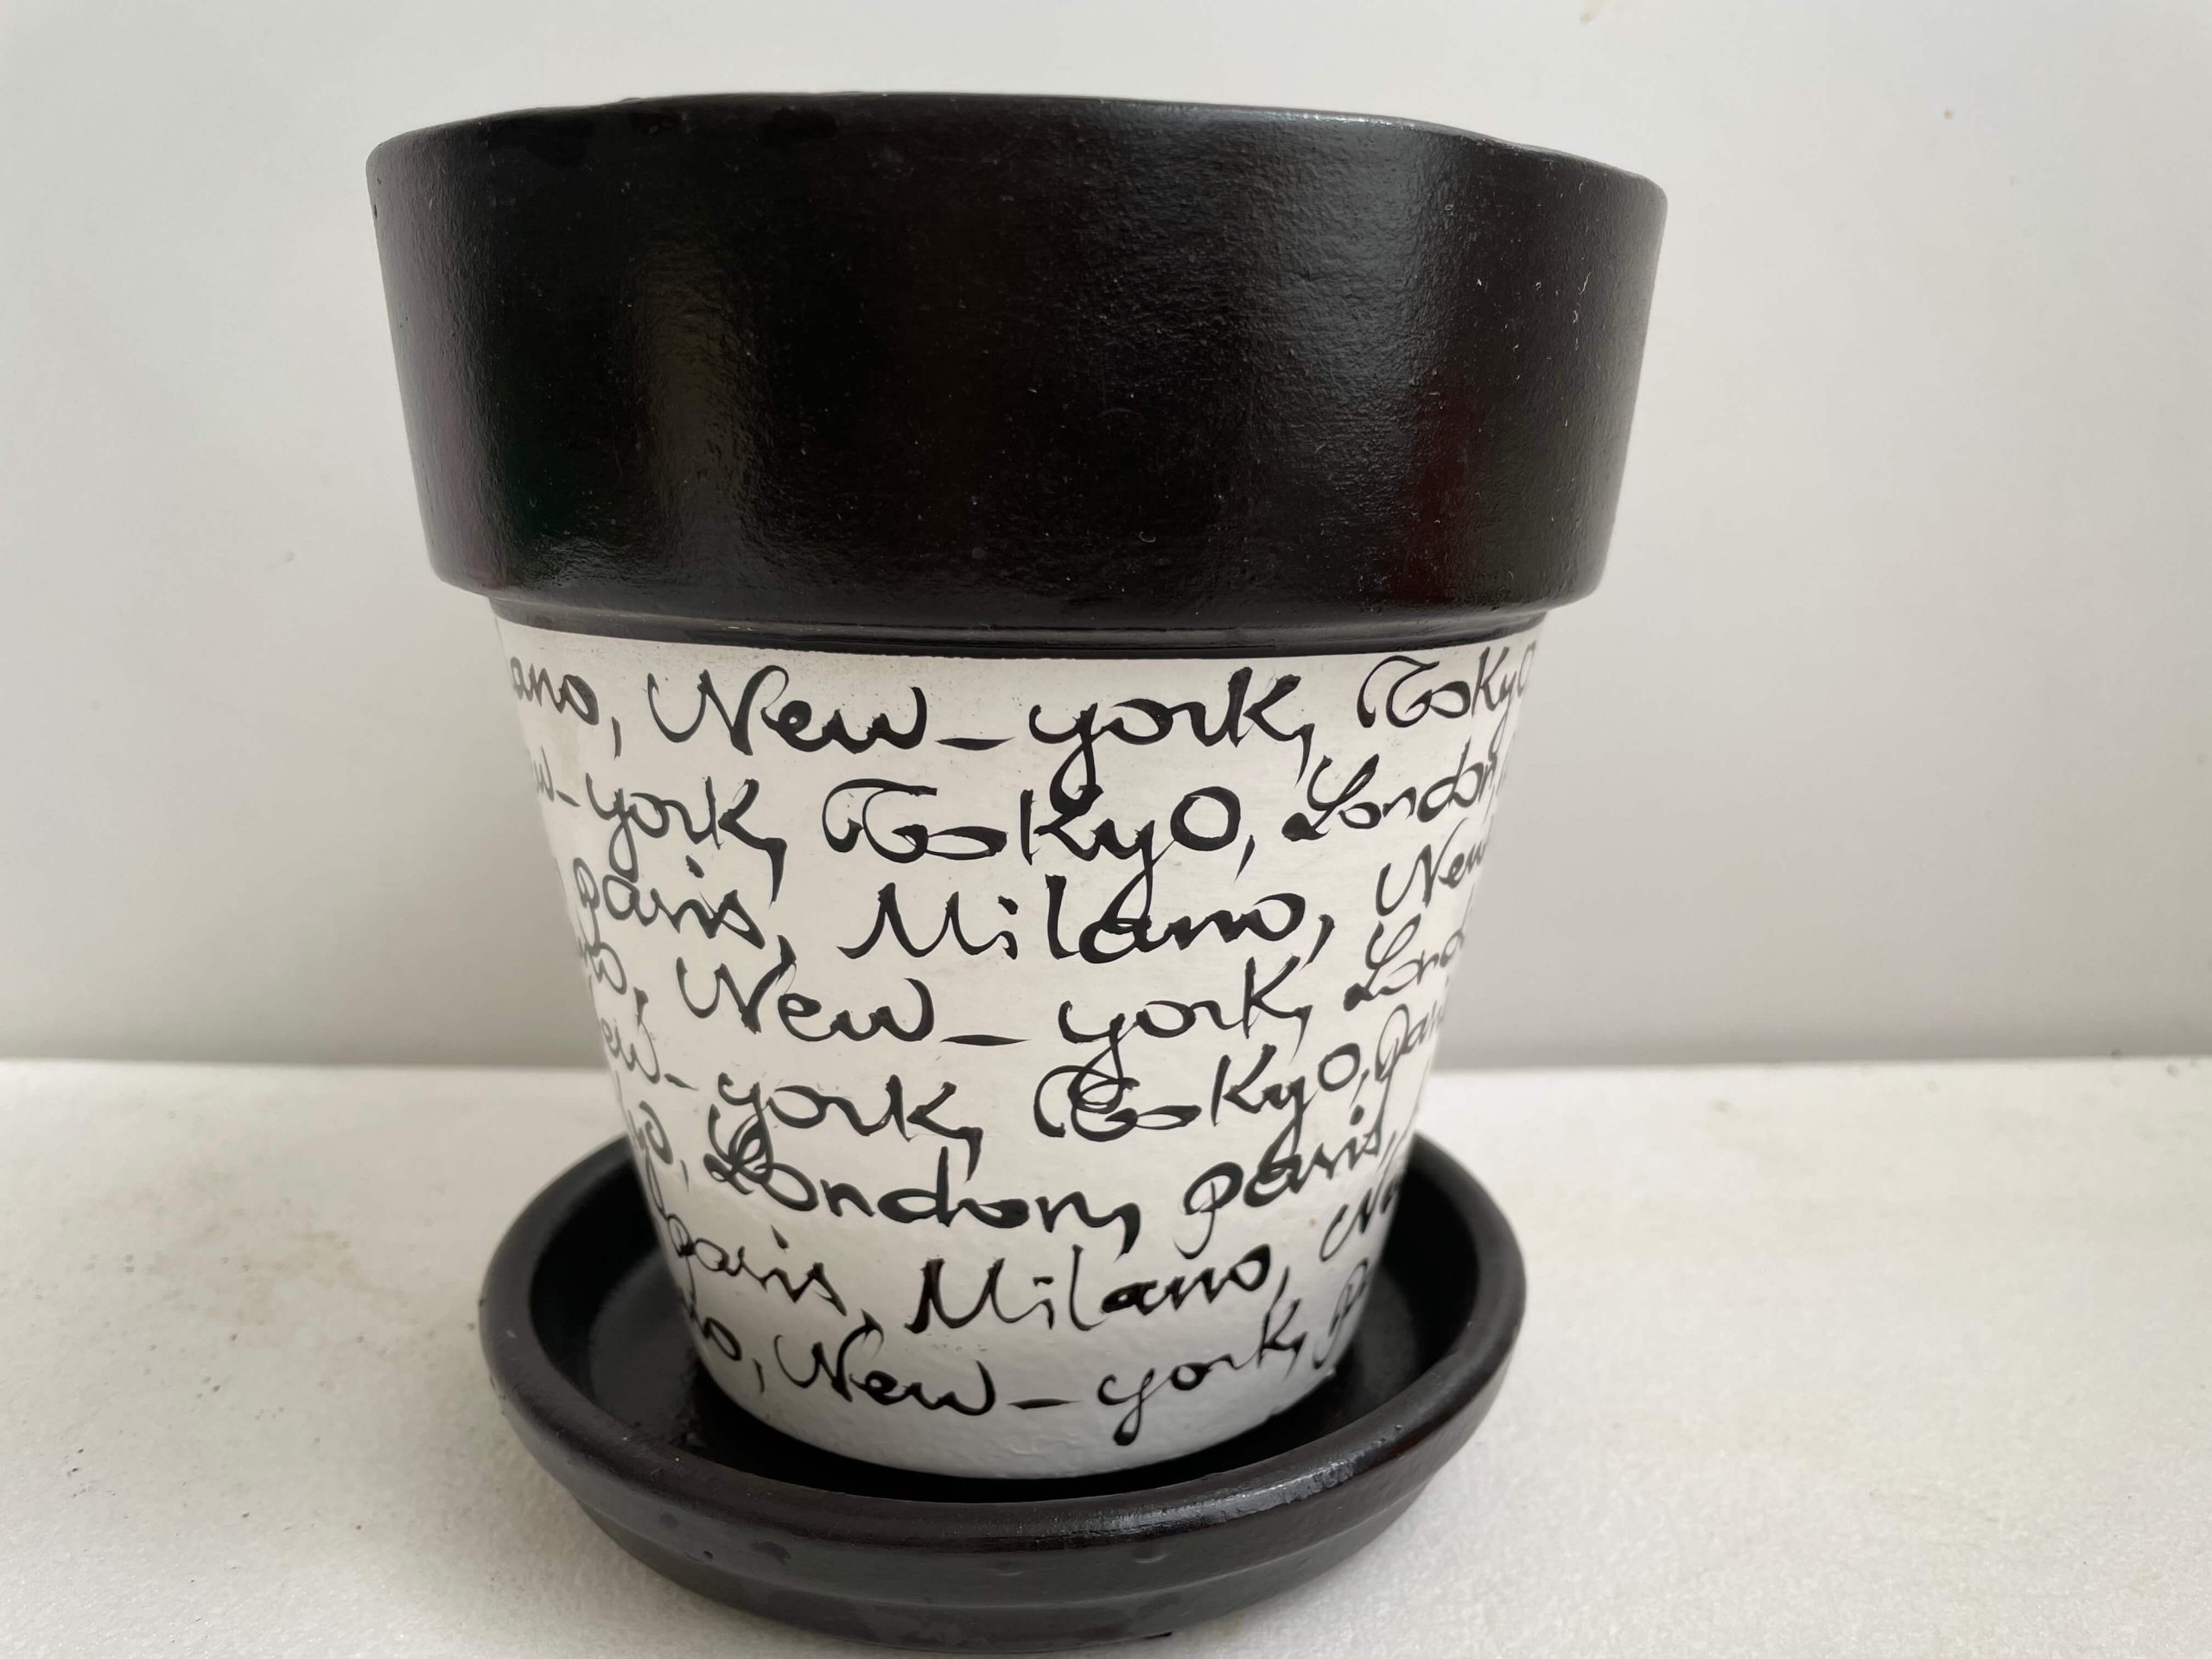 ano, New-york, TokyO
w-york, TokyO, London,
paris, Milano, New
no, New-york, Lond
ew-york, TokyO, pari
yo, London, paris,
paris, Milano, Ne
no, New-york, p